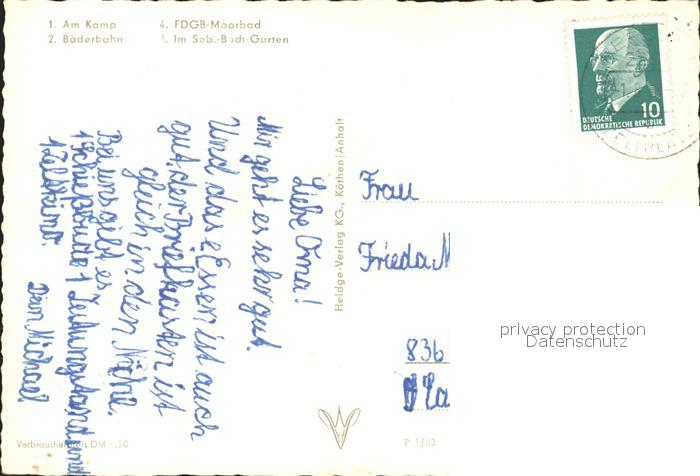 1. Am Kamp
2. Bäderbahn
4. FDGB-Moorbad
3. Im Seb.-Bach-Garten
10
DEUTSCHE
DEMOKRATISCHE REPUBLIK
Liebe Oma!
Mir geht es sehr gut.
Und das Essen ist auch
gut, der Briefkasten ist
gleich in den Nähe.
Bei uns gibt es
1 Schießbude 1 Zeitungsstand und
1 Zeltkino.
Dein Michael
Heldge-Verlag KG., Köthen/Anhalt
Frau
Frieda M
836
privacy protection
Datenschutz
Verbraucherpreis DM -.20
P 1/63